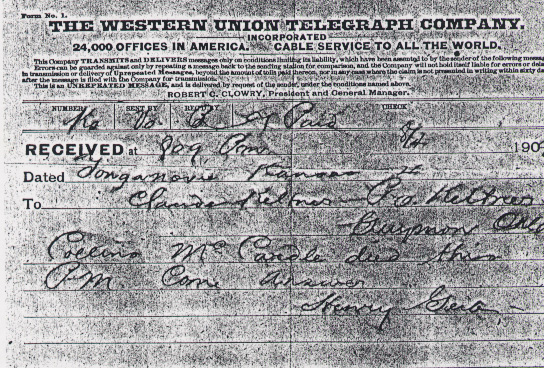 Form No. 1.
THE WESTERN UNION TELEGRAPH COMPANY.
INCORPORATED
24,000 OFFICES IN AMERICA. CABLE SERVICE TO ALL THE WORLD.
This Company TRANSMITS and DELIVERS messages only on conditions limiting its liability, which have been assented to by the sender of the following message
Errors can be guarded against only by repeating a message back to the sending station for comparison, and the Company will not hold itself liable for errors or delays
in transmission or delivery of Unrepeated Messages, beyond the amount of tolls paid thereon, nor in any case where the claim is not presented in writing within sixty da
after the message is filed with the Company for transmission.
This is an UNREPEATED MESSAGE, and is delivered by request of the sender, under the conditions named above.
ROBERT C. CLOWRY, President and General Manager.
NUMBER SENT BY REC'D BY CHECK
Paid
RECEIVED at 190
Dated Tonganoxie Kansas
To Claude Keltner
Guymon Okla
Collins McCardle died this
P.M. Come answer
Henry